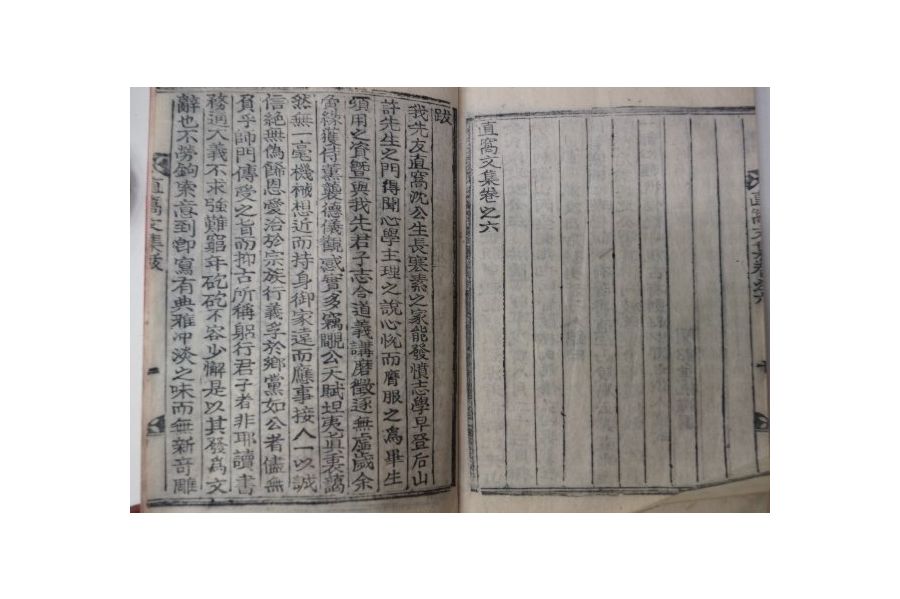 直窩文集卷之六
直窩文集卷之六
跋
我先友直窩沈公生長寒素之家能發憤志學早登后山
許先生之門得聞心學主理之說心悅而膺服之爲畢生
須用之資曁與我先君子志合道義講磨徵逐無虛歲余
角緣獲侍薰襲德儀觀感實多竊覸公天賦坦夷眞裏藹
然無一毫機械想近而持身御家遠而應事接人一以誠
信絶無僞餙恩愛洽於宗族行義孚於鄕黨如公者儘無
負乎師門傳受之旨而抑古所稱躬行君子者非耶讀書
務通大義不求強難窮年矻矻不容少懈是以其發爲文
辭也不勞鉤索意到卽寫有典雅冲淡之味而無新奇雕
直窩文集跋
一